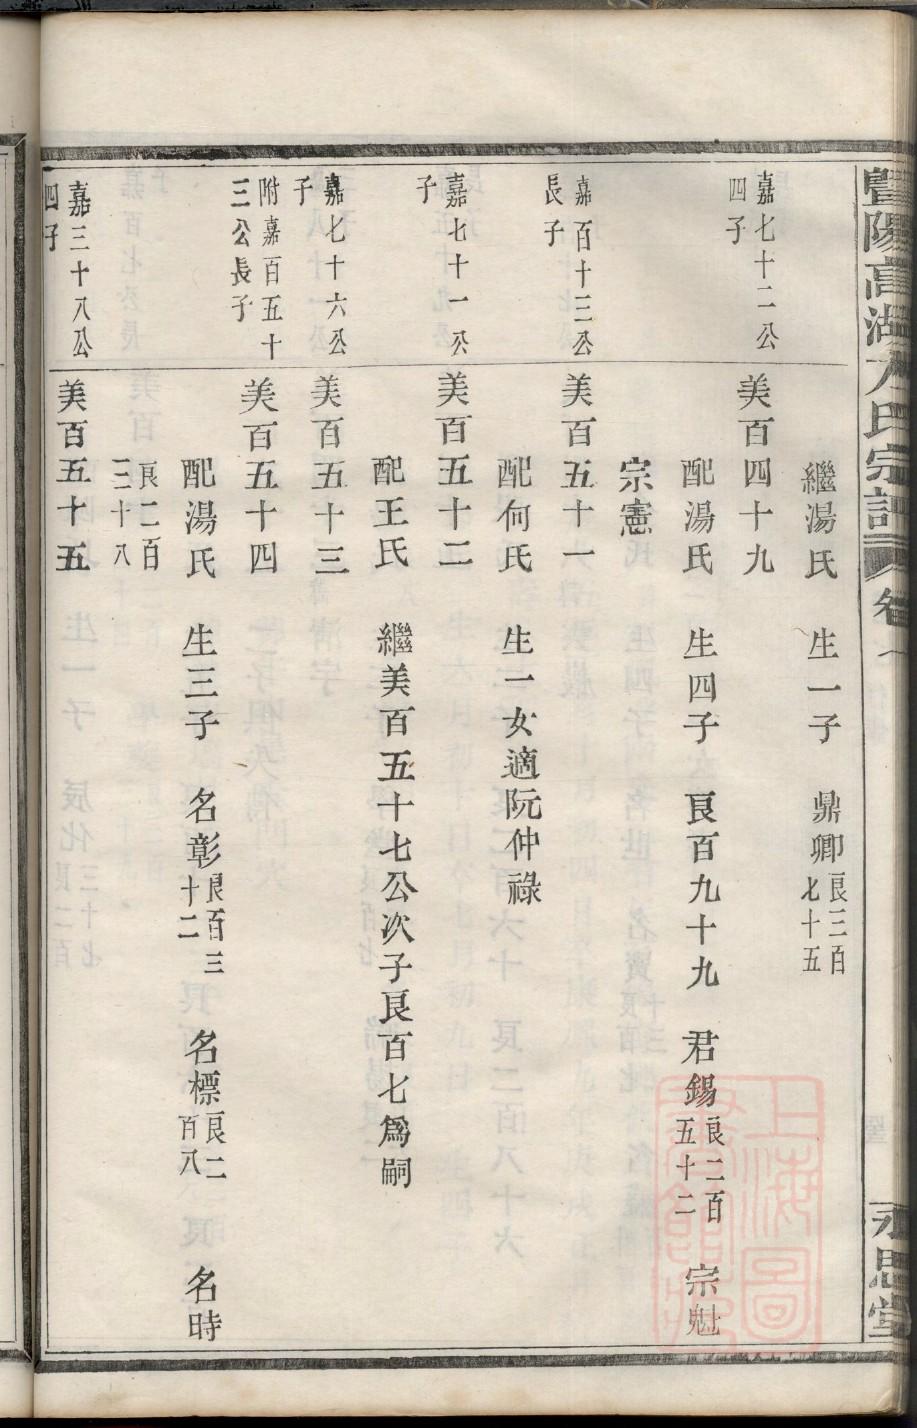 暨陽高湖方氏宗譜
永思堂
繼湯氏 生一子 鼎卿 良三百七十五
嘉七十二公四子
美百四十九
配湯氏 生四子 良百九十九 君錫 良二百五十二 宗魁
宗憲
嘉百十三公長子
美百五十一
配何氏 生一女適阮仲祿
嘉七十一公子
美百五十二
配王氏 繼美百五十七公次子良百七為嗣
嘉七十六公子
美百五十三
附嘉百五十三公長子
美百五十四
配湯氏 生三子 名彰 良百三十二 名標 良二百八 名時
良二百三十八
嘉三十八公四子
美百五十五